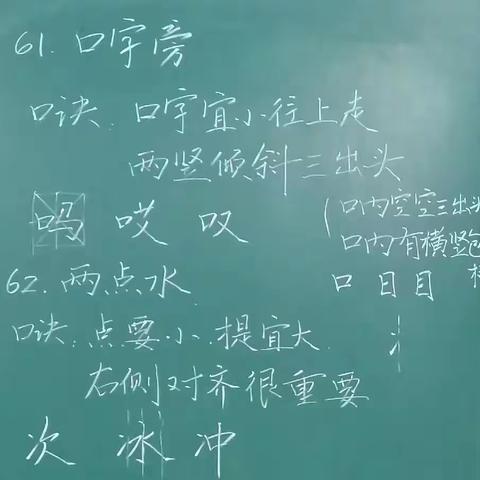 61. 口字旁
口诀. 口字宜小往上走
两竖倾斜三出头
吗 哎 叹
(口内空空三出头
口内有横竖包
口 日 目
62. 两点水
口诀:点要小.提宜大.
右侧对齐很重要
次 冰 冲